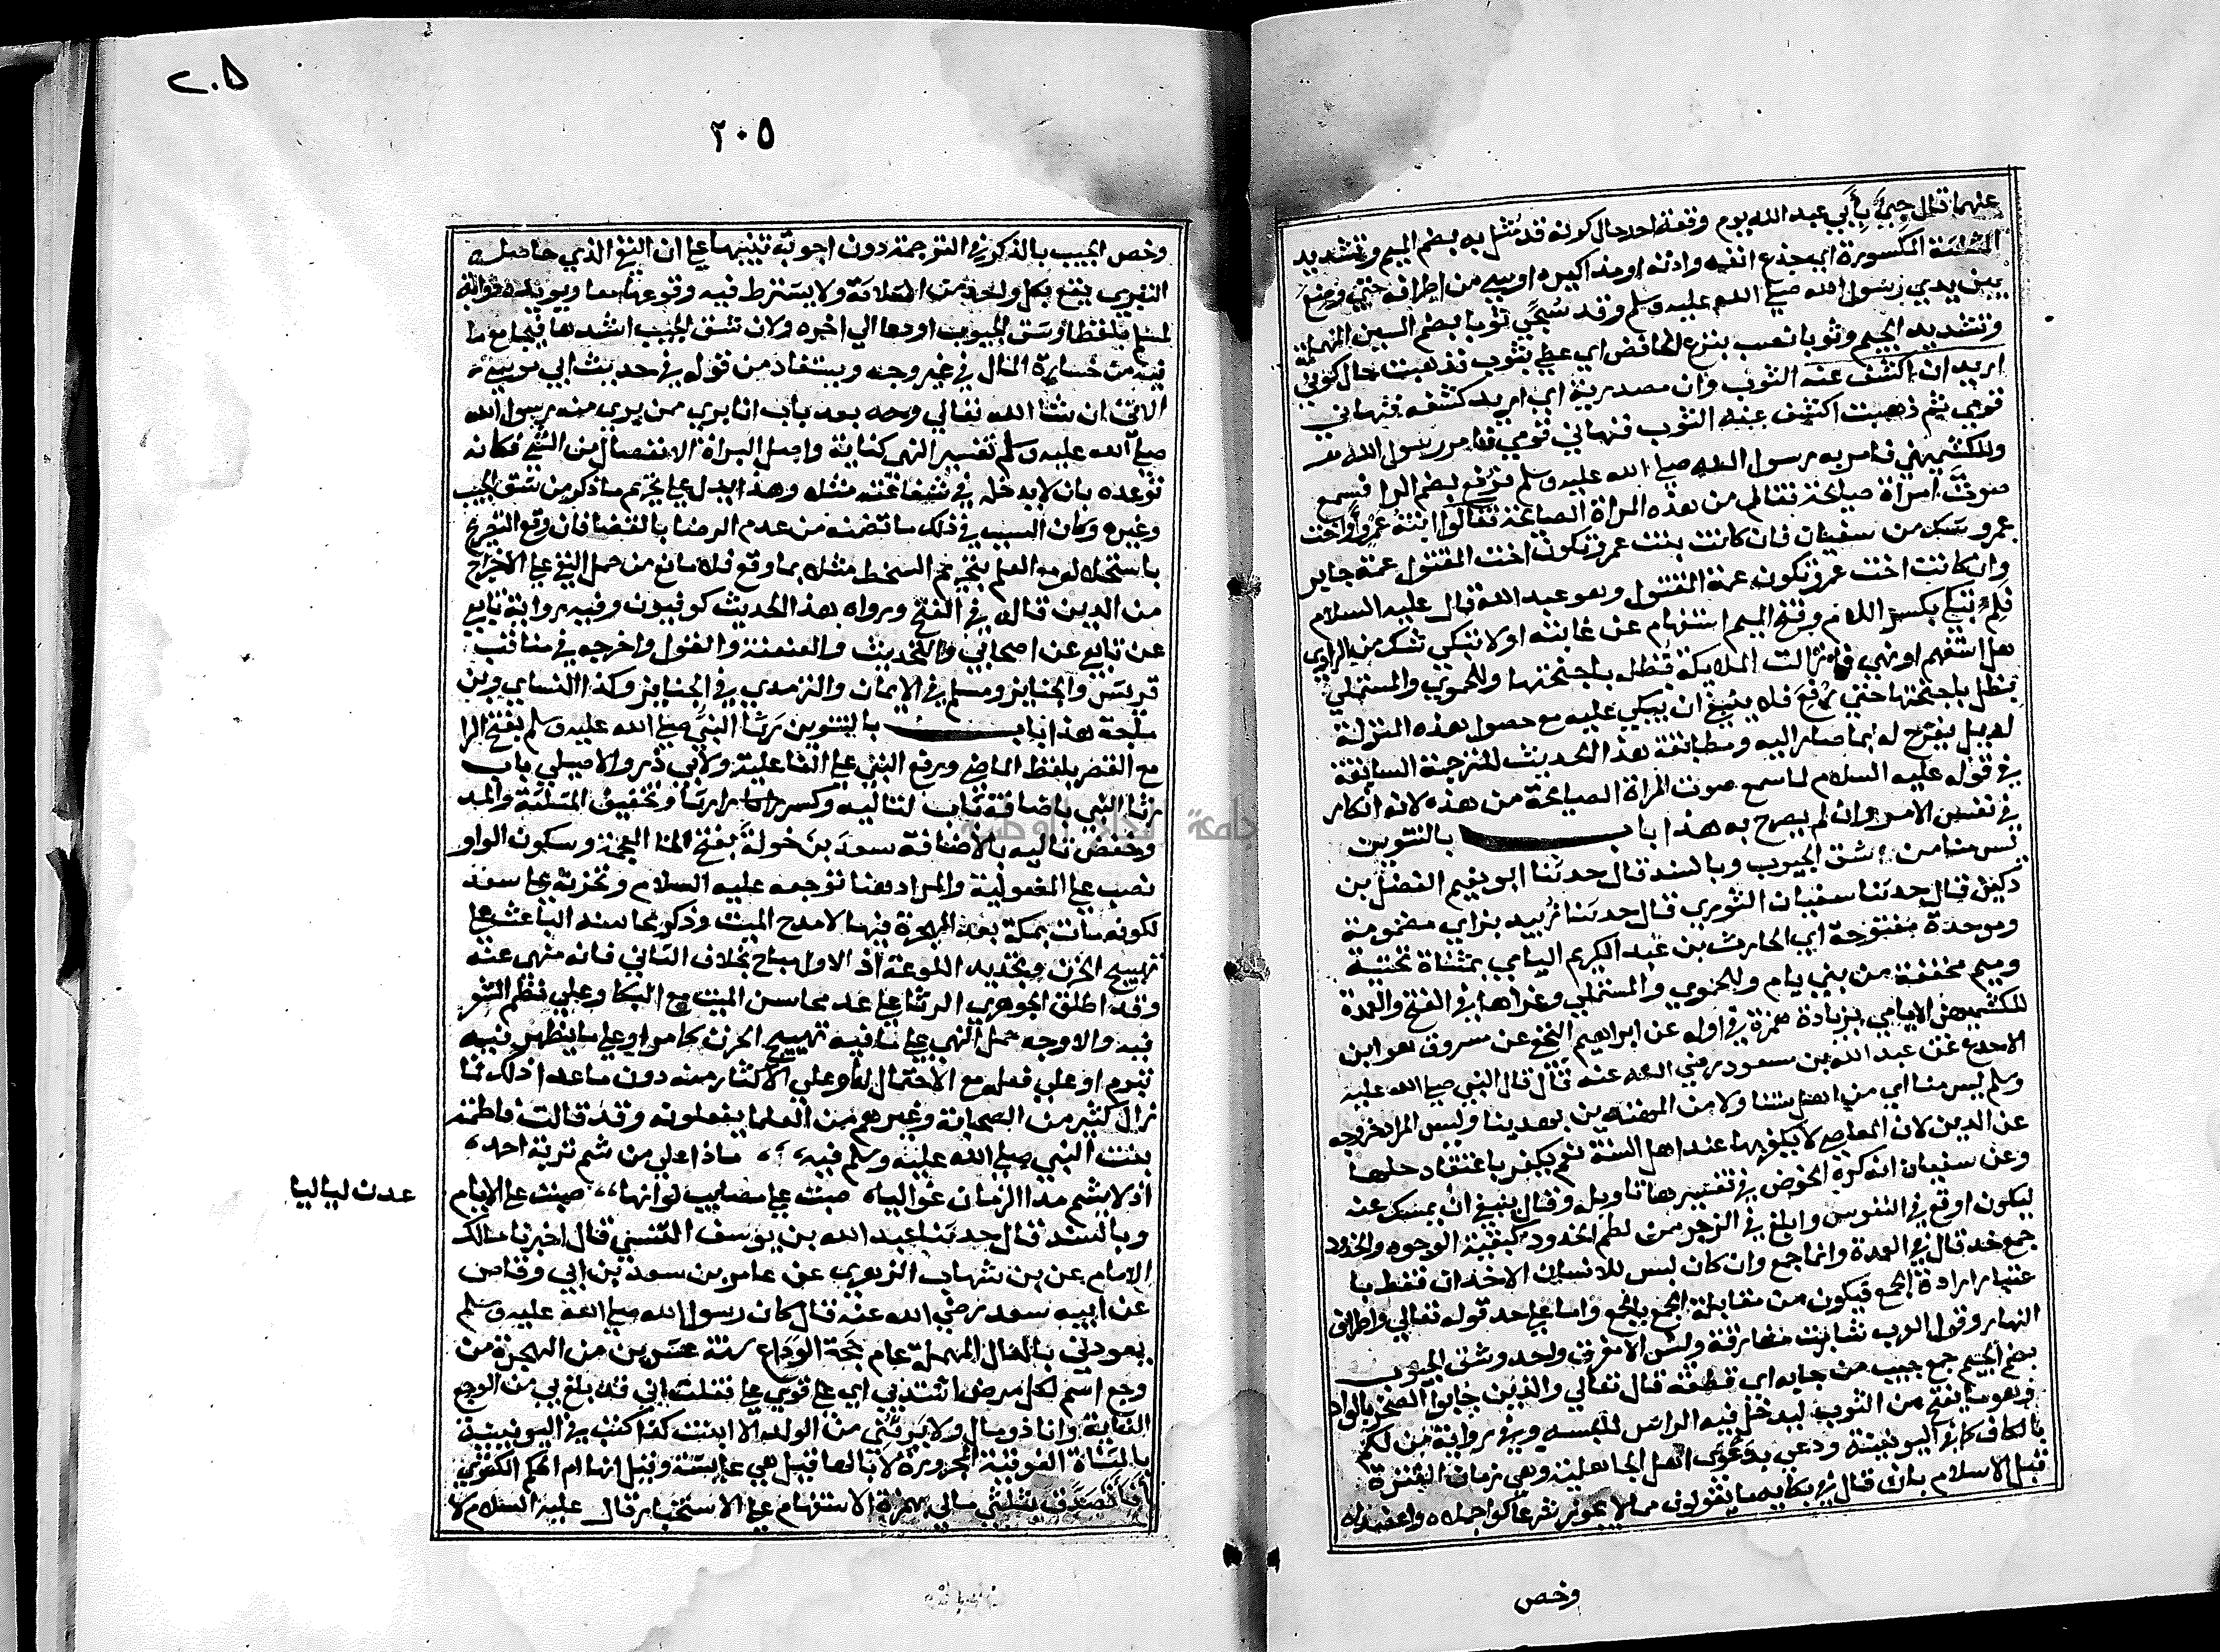 عنهما قال جيء بأبي عبد الله يوم وقعة احد حال كونه قد مثل به بضم الميم وتشديد
المثلثة المكسورة اي جذع انفه واذنه او مذاكيره او شي من اطرافه حتي وضع
بين يدي رسول الله صلي الله عليه وسلم وقد سُجّي ثوبا بضم السين المهملة
وتشديد الجيم وثوبا نصب بنزع الخافض اي غطي بثوب فذهبت حال كوني
اريد ان اكشف عنه الثوب وان مصدرية اي اريد كشفه فنهاني
قومي ثم ذهبت اكشف عنه الثوب فنهاني قومي فامر رسول الله
وللكشميهني فامر به رسول الله صلي الله عليه وسلم فرفع بضم الرا فسمع
صوتَ امراة صايحة فقال من هذه المراة الصايحة فقالوا ابنةُ عمرو أو اخت
عمرو شك من سفيان فان كانت بنت عمرو تكون اخت المقتول عمة جابر
وان كانت اخت عمرو تكون عمة المقتول وهو عبد الله قال عليه السلام
فلِمَ تبكي بكسر اللام وفتح الميم استفهام عن غايبة او لا تبكي شك من الراوي
هل استفهم او نهي فما زالت الملايكة تظل باجنحتها وللحموي والمستملي
تظل باجنحتها حتي رُفع فلا ينبغي ان يبكي عليه مع حصول هذه المنزلة
له بل يفرح له بما صار اليه ومطابقة هذا الحديث للترجمة السابقة
في قوله عليه السلام لما سمع صوت المراة الصايحة من هذه لانه انكار
في نفس الامر وان لم يصرح به هذا باب بالتنوين
ليس منا من شق الجيوب وبالسند قال حدثنا ابو نعيم الفضل بن
دكين قال حدثنا سفيان الثوري قال حدثنا زبيد بزاي مضمومة
وموحدة مفتوحة اي الحارث بن عبد الكريم اليامي بمثناة تحتية
وميم مخففة من بني يام وللحموي والمستملي وعزاها في الفتح والعمدة
للكشميهني الايامي بزيادة همزة في اوله عن ابراهيم النخعي عن مسروق هو ابن
الاجدع عن عبد الله بن مسعود رضي الله عنه قال قال النبي صلي الله عليه
وسلم ليس منا اي من اهل سنتنا ولا من المهتدين بهدينا وليس المراد خروجه
عن الدين لان المعاصي لا يكفر بها عند اهل السنة نعم يكفر باعتقاد حلها
وعن سفيان انه كره الخوض في تفسير هذا تاويله وقال ينبغي ان يمسك عنه
ليكون اوقع في النفوس وابلغ في الزجر من لطم الخدود كبقية الوجوه والخدود
جمع خد قال في العمدة وانما جمع وان كان ليس للانسان الا خدان فقط با
عتبار ارادة الجمع فيكون من مقابلة الجمع بالجمع واما علي حد قوله تعالي واطراف
النهار وقول العرب شابت مفارقه وليس الا مفرق واحد وشق الجيوب
بضم الجيم جمع جيب من جابه اي قطعه قال تعالي والذين جابوا الصخر بالواد
وهو ما يفتح من الثوب ليدخل فيه الراس للبسه وفي رواية من لكم
بالكاف كما في اليونينية ودعي بدعوي اهل الجاهلية وهي زمان الفترة
قبل الاسلام بان قال في بكايه ما يقولون مما لا يجوز شرعًا كوا جبلاه واعضداه
وخص
٢٠٥
٢٠٥
وخص الجيب بالذكر في الترجمة دون اخويه تنبيها علي ان النفي الذي حاصله
التبري يقع بكل واحد من الثلاثة ولا يشترط فيه وقوعها معا ويويده رواية
لمسلم بلفظ او شق الجيوب او دعا الي اخره ولان شق الجيب اشدها قبحا مع ما
فيه من خسارة المال في غير وجه ويستفاد من قوله في حديث ابي موسي
الاتي ان شا الله تعالي وحه بعد باب انا بري ممن بري منه رسول الله
صلي الله عليه وسلم تفسير النهي كفاية واصل البراة الانفصال من الشي فكانه
توعده بان لا يدخله في شفاعته مثلا وهذا يدل علي تحريم ما ذكر من شق الجيب
وغيره وكان السبب في ذلك ما تضمنه من عدم الرضا بالقضا فان وقع التصريح
باستحلاله مع العلم بتحريم السخط مثلا بما وقع فلا مانع من حمل النفي علي الاخراج
من الدين قاله في الفتح ورواه هذا الحديث كوفيون وفيه رواية تابعي
عن تابعي عن صحابي والتحديث والعنعنة والقول واخرجه في مناقب
قريش والجنايز ومسلم في الايمان والترمذي في الجنايز وكذا النساي وبن
ماجة هذا باب بالتنوين رَثَا النبي صلي الله عليه وسلم بفتح الرا
مع القصر بلفظ الماضي ورفع النبي علي الفاعلية ولابي ذر والاصيلي باب
رثا النبي باضافة باب لتاليه وكسر را رثا وتخفيف المثلثة والمد
وخفض تاليه بالاضافة سعدَ بن خولة بفتح الخا المعجمة وسكون الواو
نصب علي المفعولية والمراد هنا توجعه عليه السلام وتحزنه علي سعد
لكونه مات بمكة بعد الهجرة منها لا مدح الميت وذكر محاسنه الباعث علي
تهييج الحزن وتجديد اللوعة اذ الاول مباح بخلاف الثاني فانه منهي عنه
وقد اطلق الجوهري الرثا علي عد محاسن الميت مع البكا وعلي نظم الشعر
فيه والاوجه حمل النهي علي ما فيه تهييج الحزن كما مر او علي ما يظهر فيه
تبرم او علي فعله مع الاجتماع له او علي الاكثار منه دون ما عدا ذلك فما
زال كثير من الصحابة وغيرهم من العلما يفعلونه وقد قالت فاطمة
بنت النبي صلي الله عليه وسلم فيه ماذا علي من شم تربة احمد
ان لا يشم مدا الزمان غواليا صبت علي مصايب لو انها صبت علي الايام
عدن لياليا
وبالسند قال حدثنا عبد الله بن يوسف التنيسي قال اخبرنا مالك
الامام عن بن شهاب الزهري عن عامر بن سعد بن ابي وقاص
عن ابيه سعد رضي الله عنه قال كان رسول الله صلي الله عليه وسلم
يعودني بالدال المهملة عام حجة الوداع سنة عشر من الهجرة من
وجع اسم لكل مرض اشتد بي اي علي قوي علي فقلت اني قد بلغ بي من الوجع
الغاية وانا ذو مال ولا يرثني من الولد الا ابنت كذا كتب في اليونينية
بالمثناة الفوقية المجرورة لا بالها قيل هي عايشة وقيل انها ام الحكم الكبري
أفأتصدق بثلثي مالي بهمزة الاستفهام علي الاستخبار قال عليه السلام لا